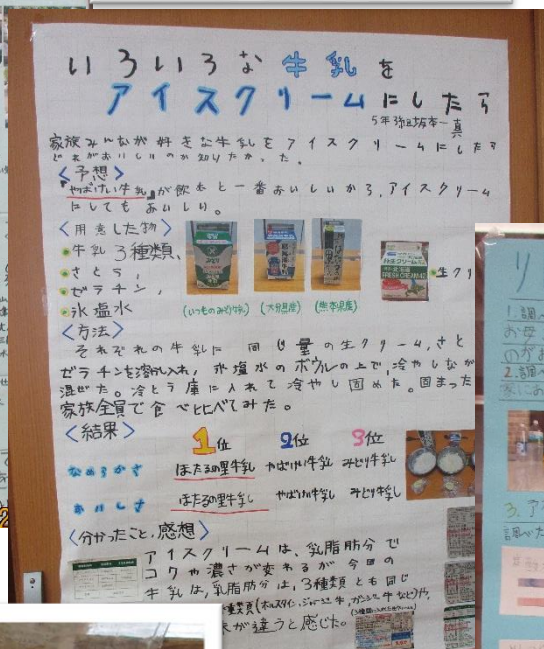 いろいろな牛乳を
アイスクリームにしたら
5年
家族みんなが好きな牛乳をアイスクリームにしたら
どれがおいしいのか知りたかった。
<予想>
「やばけい牛乳」が飲むと一番おいしいから、アイスクリーム
にしてもおいしい。
<用意した物>
牛乳 3種類、
さとう
ゼラチン、
氷塩水
生クリ
(いつものみどり牛乳) (大分県産) (熊本県産)
<方法>
それぞれの牛乳に 同じ量の生クリーム、さと
ゼラチンを溶かし入れ、氷塩水のボウルの上で、冷やしなが
混ぜた。冷とう庫に入れて冷やし固めた。固まった
家族全員で食べ比べてみた。
<結果>
1位 2位 3位
なめらかさ ほたるの里牛乳 やばけい牛乳 みどり牛乳
おいしさ ほたるの里牛乳 やばけい牛乳 みどり牛乳
<分かったこと、感想>
アイスクリームは、乳脂肪分で
コクや濃さが変わるが今回の
牛乳は、乳脂肪分は、3種類とも同じ
種類(ホルスタイン、ジャージー牛、ガンジー牛など)や、
が違うと感じた。
リ
1.調べ
お母
のがお
2.調べ
家にあ
3.
調べた